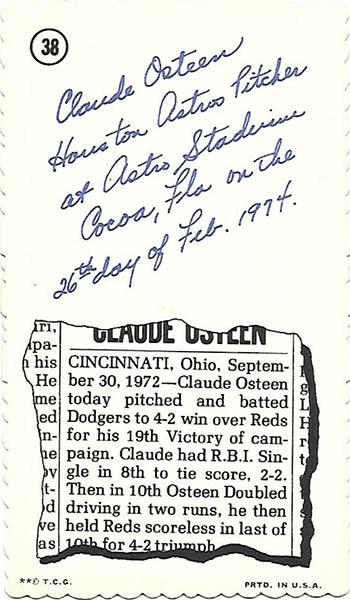 38
Claude Osteen
Houston Astros Pitcher
at Astro Stadium
Cocoa, Fla on the
26th day of Feb. 1974.
CLAUDE OSTEEN
CINCINNATI, Ohio, Septem-
ber 30, 1972—Claude Osteen
today pitched and batted
Dodgers to 4-2 win over Reds
for his 19th Victory of cam-
paign. Claude had R.B.I. Sin-
gle in 8th to tie score, 2-2.
Then in 10th Osteen Doubled
driving in two runs, he then
held Reds scoreless in last of
10th for 4-2 triumph
**© T.C.G.
PRTD. IN U.S.A.